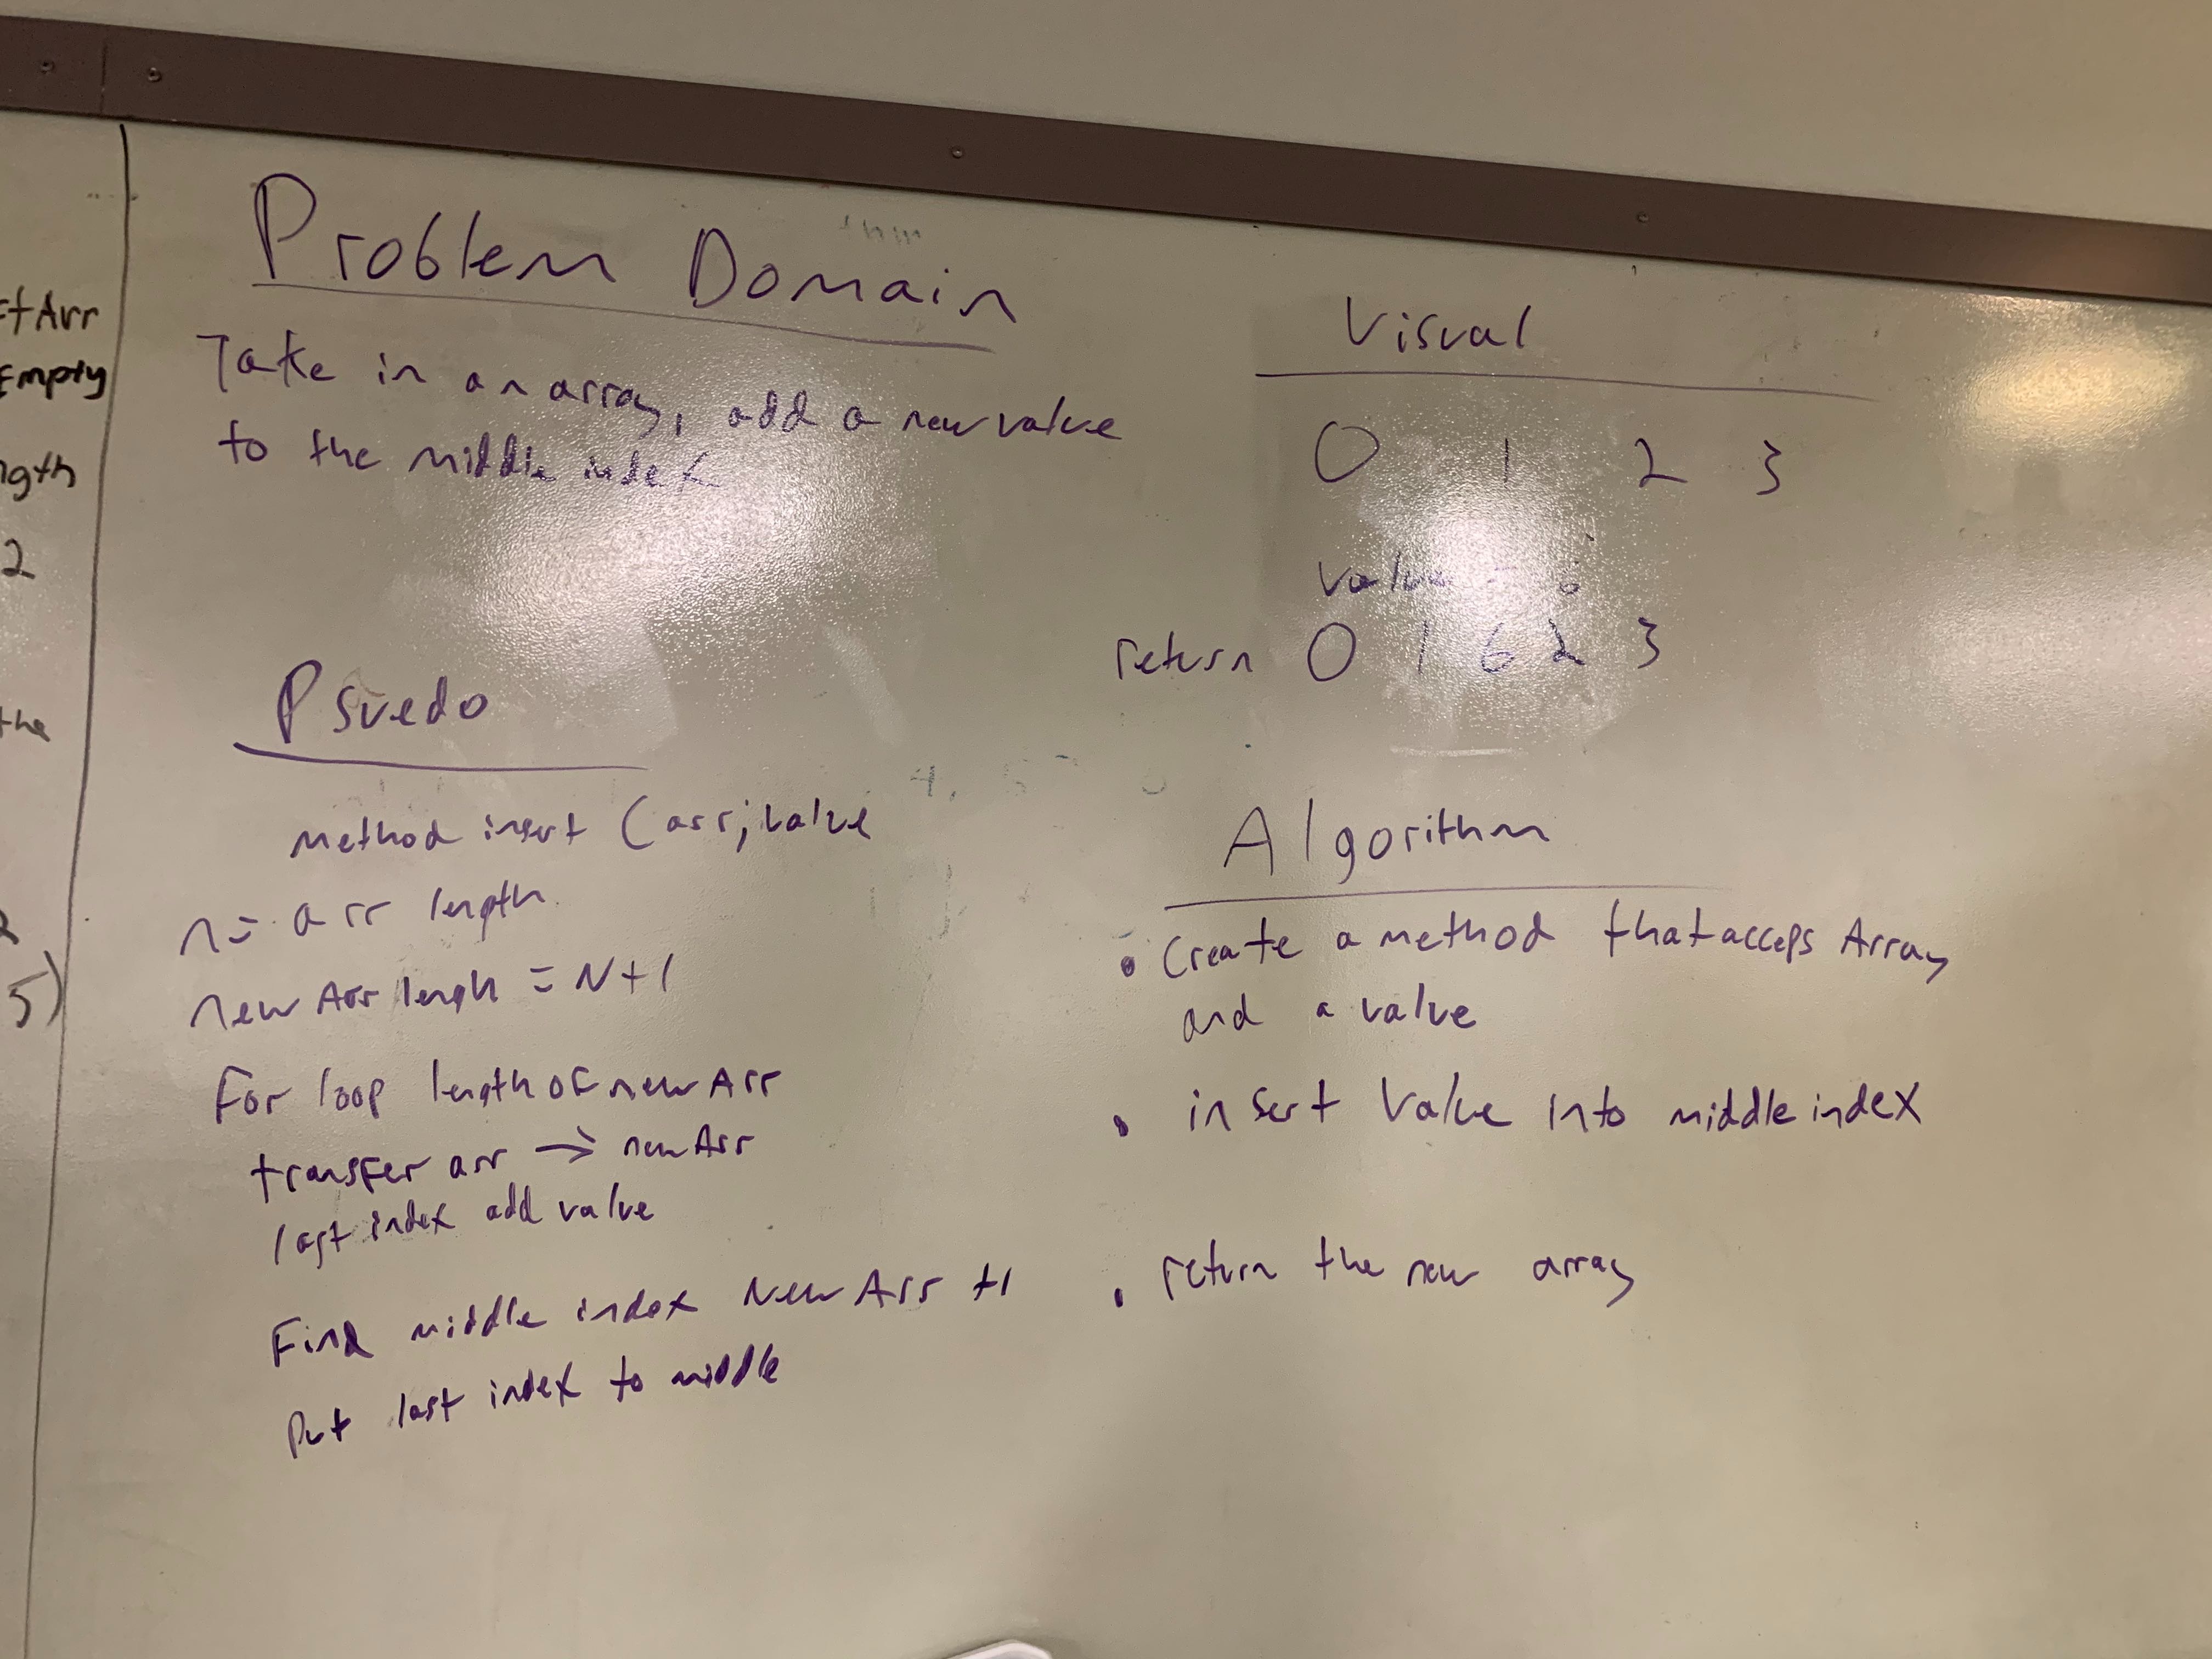 Problem Domain
Take in an array, add a new value
to the middle index
Visual
0 1 2 3
value
return 0 1 6 2 3
Psuedo
method insert (arr, value
n = arr length
new Arr lengh = N+1
For loop length of new Arr
transfer arr → new Arr
last index add value
Find middle index New Arr +1
Put last index to middle
Algorithm
• Create a method that acceps Array
and a value
• insert value into middle index
• return the new array
tArr
Empty
ngth
2
the
5)